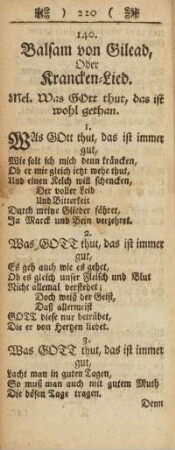 220
140.
Balsam von Gilead,
Oder
Krancken-Lied.
Mel. Was GOtt thut, das ist
wohl gethan.
1.
WAs GOtt thut, das ist immer
gut,
Wie solt ich mich denn kräncken,
Ob er mir gleich jetzt wehe thut,
Und einen Kelch will schencken,
Der voller Leid
Und Bitterkeit
Durch meine Glieder fähret,
Ja Marck und Bein verzehret.
2.
Was GOTT thut, das ist immer
gut,
Es geh auch wie es gehet,
Ob es gleich unser Fleisch und Blut
Nicht allemal verstehet;
Doch weiß der Geist,
Daß allermeist
GOTT diese nur betrübet,
Die er von Hertzen liebet.
3.
Was GOTT thut, das ist immer
gut,
Lacht man in guten Tagen,
So muß man auch mit gutem Muth
Die bösen Tage tragen.
Denn